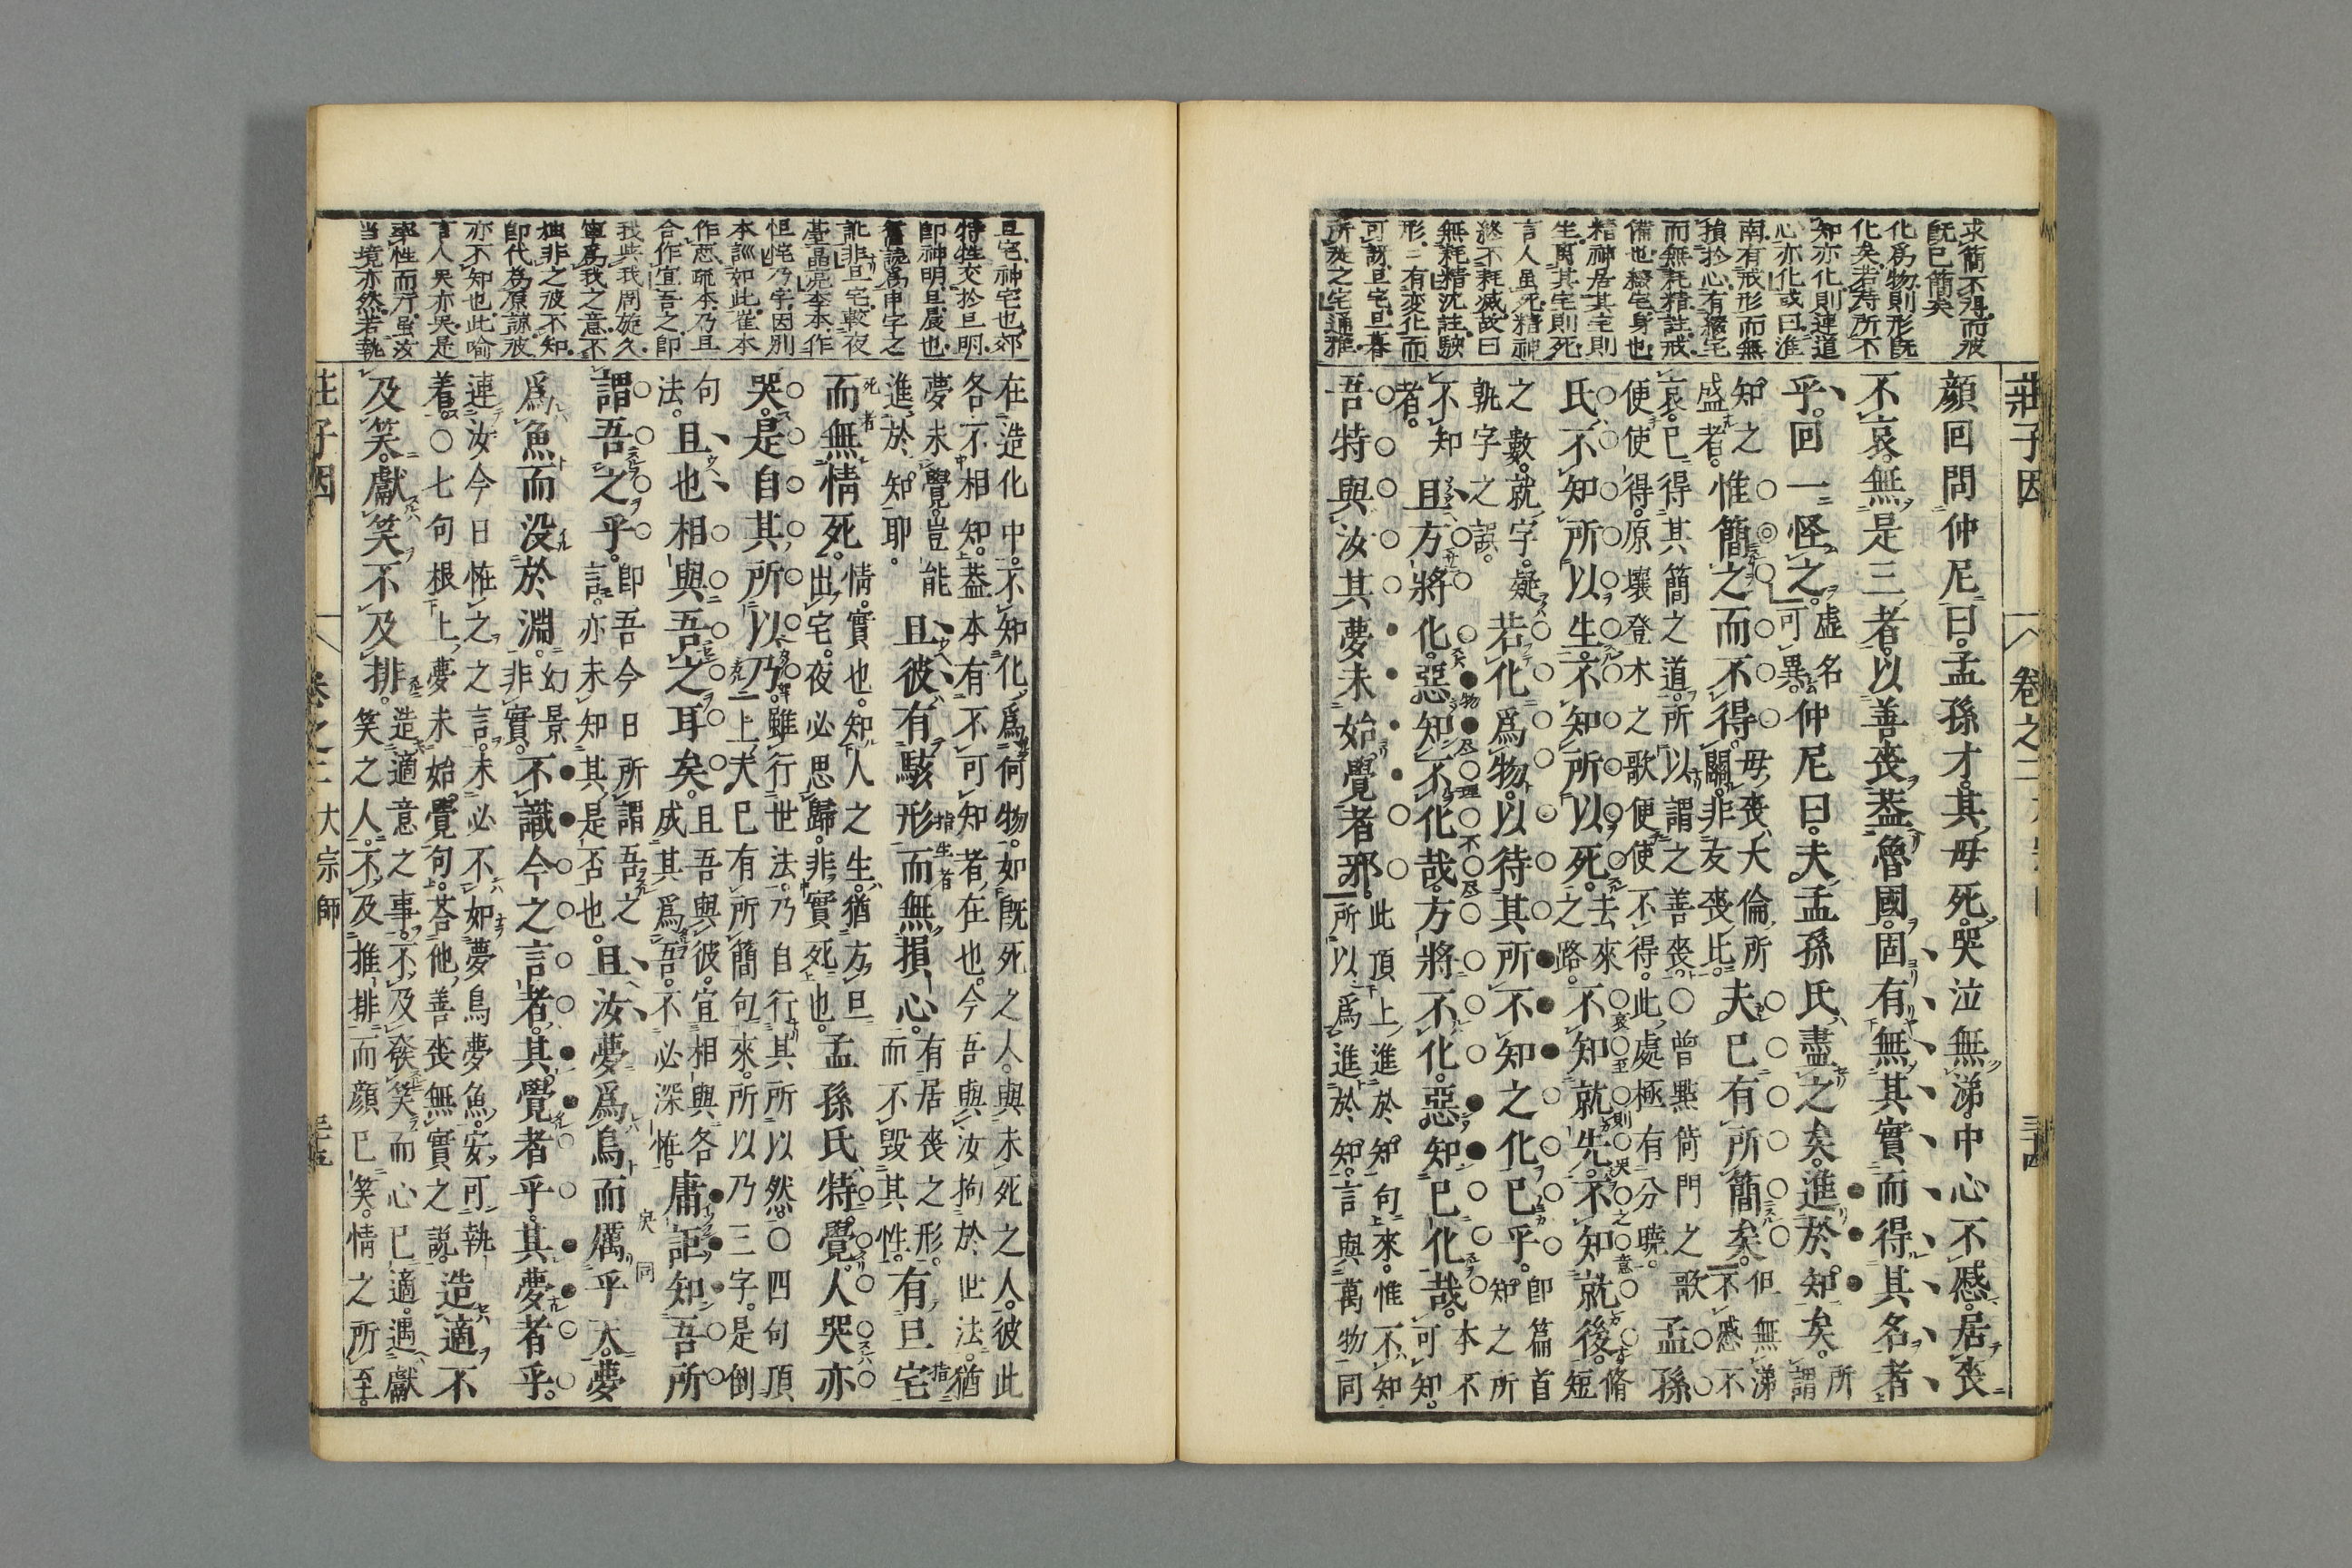 莊子因
卷之二
三十四
求簡不得而彼
既已簡矣
化爲物則形既
化矣若待所不
知亦化則連道
心亦化或曰淮
南有戒形而無
損於心有綴宅
而無耗精註戒
備也綴宅身也
精神居其宅則
生离其宅則死
言人虽死精神
終不耗滅故曰
無耗精沈註駭
形二有変化而
可訝旦宅旦暮
所廷之宅通雅
顏回問仲尼曰孟孫才其母死哭泣無涕中心不慼居喪
不哀無是三者以善喪葢魯國固有無其實而得其名者
乎回一怪之虛名可異仲尼曰夫孟孫氏盡之矣進於知矣所謂
知之盛者惟簡之而不得母喪大倫所關非友喪比夫已有所簡矣但無涕不慼不
哀已得其簡之道所以謂之善喪○曾點倚門之歌
便使得原壤登木之歌便使不得此處極有分曉孟孫
氏不知所以生不知所以死去來之路不知就先不知就後脩短
之數就字疑孰字之誤若化爲物以待其所不知之化已乎卽篇首知之所
不知者且方將化惡知不化哉方將不化惡知已化哉本不可知
吾特與汝其夢未始覺者邪此頂上進於知句來惟不知所以爲進於知言與萬物同
旦宅神宅也郊
特牲交於旦明
卽神明旦晨也
舊說爲申字之
訛非旦宅較夜
臺晶亮李本作
怛𢗘乃字因別
本訓如此崔本
作惡疏本乃且
合作宜吾之卽
我此我周旋久
寧爲我之意不
独非之彼不知
卽代爲原諒彼
亦不知也此喻
言人哭亦哭是
率性而行虽汝
当境亦然若執
在造化中不知化爲何物如既死之人與未死之人彼此
各不相知葢本有不可知者在也今吾與汝拘於世法猶
夢未覺豈能進於知耶且彼有駭形而無損心有居喪之形而不毀其性有旦宅
而無情死情實也知人之生猶方旦出宅夜必思歸非實死也孟孫氏特覺人哭亦
哭是自其所以乃雖行世法乃自行其所以然○四句頂上夫已有所簡句來所以乃三字是倒
句法且也相與吾之耳矣且吾與彼宜相與各成其爲吾不必深恠庸詎知吾所
謂吾之乎卽吾今日所謂吾之言亦未知其是否也且汝夢爲鳥而厲乎天夢
爲魚而没於淵幻景非實不識今之言者其覺者乎其夢者乎
連汝今日恠之之言未必不如夢鳥夢魚安可執
着○七句根上夢未始覺句荅他善喪無實之說造適不
及笑獻笑不及排造適意之事不及發笑而心已適遇獻笑之人不及推排而顏已笑情之所至
莊子因
卷之二
大宗師
三十五